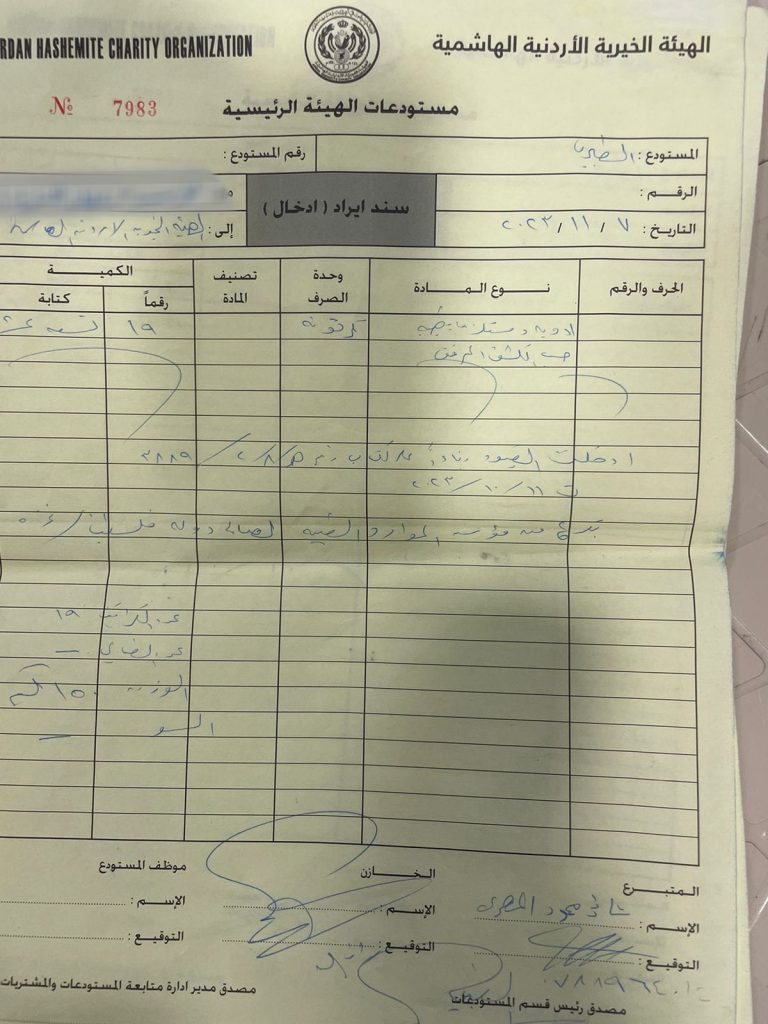 الهيئة الخيرية الأردنية الهاشمية
RDAN HASHEMITE CHARITY ORGANIZATION
مستودعات الهيئة الرئيسية
№ 7983
المستودع :
رقم المستودع :
الرقم :
سند ايراد ( ادخال )
التاريخ : ٧ / ١١ / ٢٠٢٣
إلى : الهيئة الخيرية الاردنية الهاشمية
الحرف والرقم
نوع المادة
وحدة الصرف
تصنيف المادة
الكمية
رقماً
كتابة
ادوية ومستلزمات طبية
كرتونة
١٩
تسعة عشر
حسب الكشف المرفق
ادخلت المواد بناءً على كتاب رقم هـ/٨/٢/ ٣٨٨٩
ت ١١/ ١٠/ ٢٠٢٣
تبرع من مؤسسة لصالح دولة فلسطين/ غزة
عدد الكراتين ١٩
الوزن ١٥٠ كغم
المتبرع
الخازن
موظف المستودع
الإسم :
الإسم :
الإسم :
التوقيع :
التوقيع :
التوقيع :
مصدق رئيس قسم المستودعات
مصدق مدير ادارة متابعة المستودعات والمشتريات